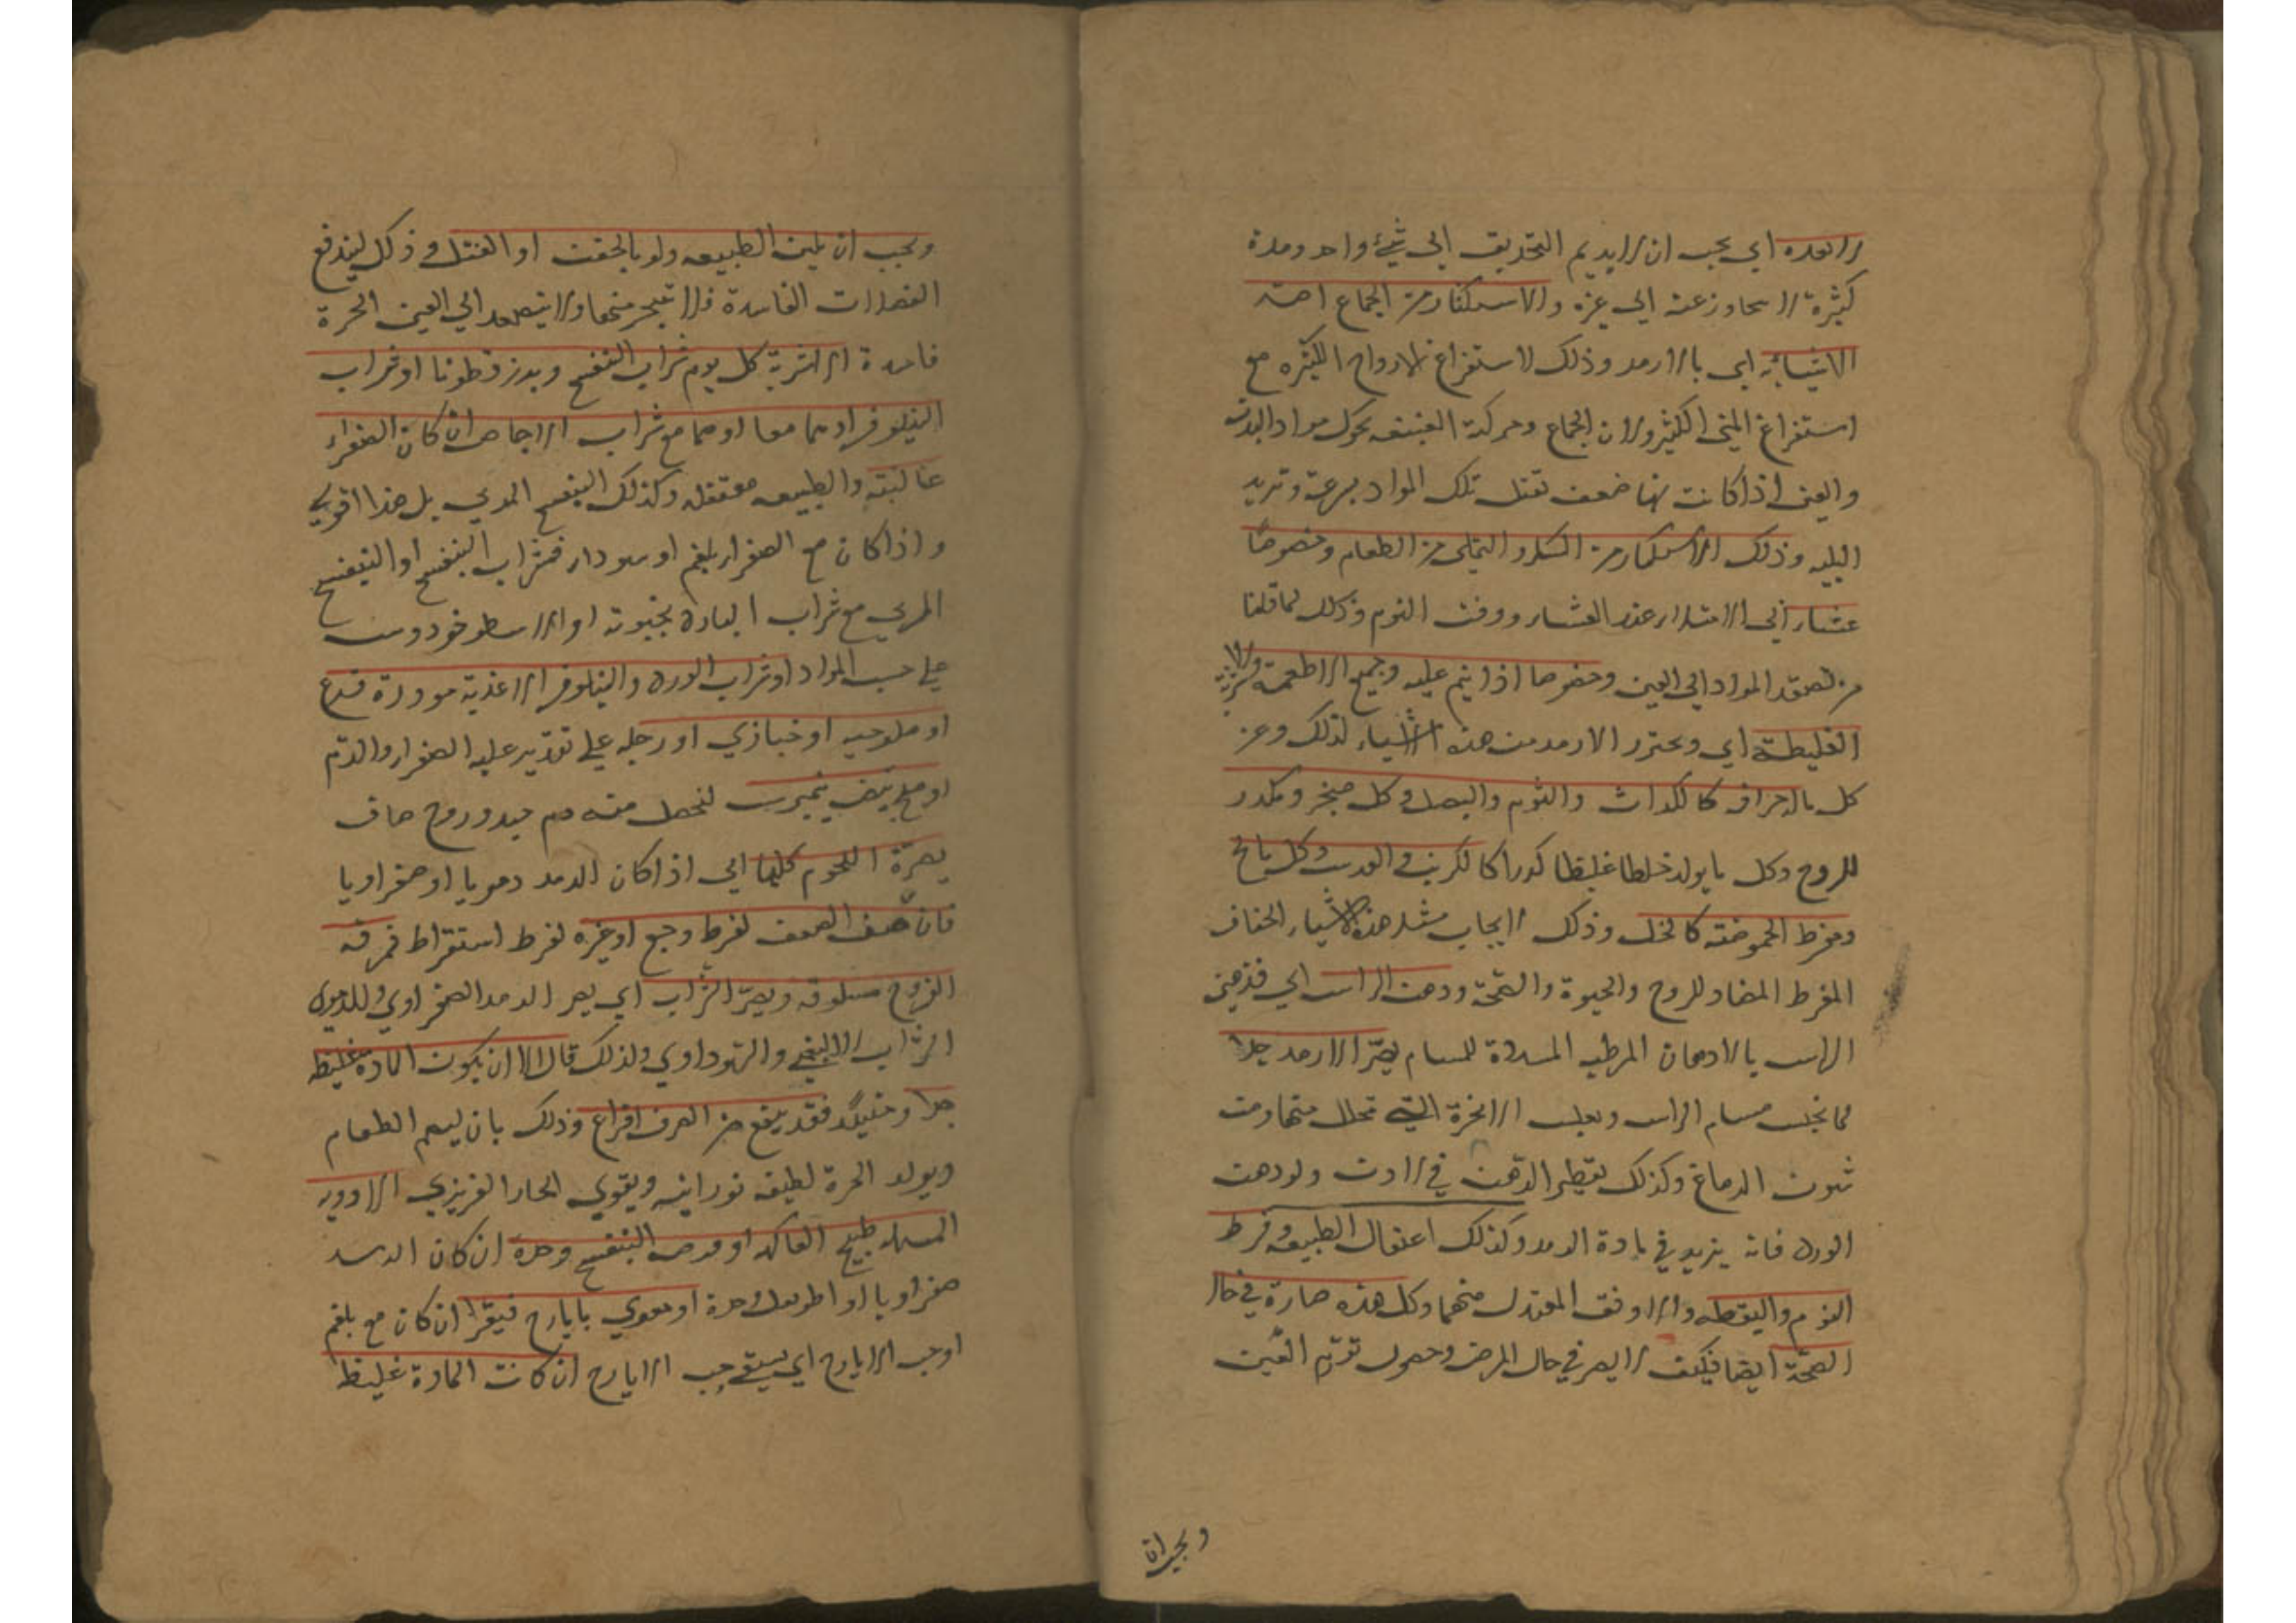 لا يعده اي يجب ان لا يديم التحديق الى شيء واحد ومدة
كثيرة لا يتجاوز عنه الى غيره والاستكثار من الجماع اضر
الاشياء به اي بالارمد وذلك لاستفراغ الارواح الكثيره مع
استفراغ المني الكثير ولان الجماع وحركة العنيفه يحرك مواد البدن
والعين اذا كانت بها ضعف تقبل تلك المواد بسرعة وتزيد
البليه وذلك الاستكثار من السكر والتملى من الطعام وخصوصا
عشاء اي الامتلاء عند العشاء ووقت النوم وذلك لما قلنا
من تصعد المواد الى العين وخصوصا اذا ينم عليه وجميع الاطعمة والاشربة
الغليظة اي ويحترز الارمد من هذه الاشياء لذلك وعن
كل ماله حرافه كالكراث والثوم والبصل وكل مبخر ومكدر
للروح وكل ما يولد خلطا غليظا كدرا كالكرنب والعدس وكل مالح
ومفرط الحموضة كالخل وذلك لايجاب مثل هذه الاشياء الجفاف
المفرط المضاد للروح والحيوة والصحة ودهن الراس اي فتدهين
الراس بالادهان المرطبه المسددة للمسام يضر الارمد جدا
لما يحبس مسام الراس ويحبس الابخرة التي تحلل منها ومن
شون الدماغ وكذلك يقطر الدهن في الاذن ولو دهن
الورد فانه يزيد في مادة الرمد وكذلك اعتقال الطبيعه وفرط
النوم واليقظه والاوفق المعتدل منهما وكل هذه ضارة في حال
الصحة ايضا فكيف لا يضر في حال المرض وحصول تورم العين
ويجب ان
ويجب ان يلين الطبيعه ولو بالحقن او الفتل وذلك ليندفع
الفضلات الفاسدة فلا تبخر منها ولا يتصعد الى العين ابخرة
فاسدة الاشربة كل يوم شراب البنفسج وبزر قطونا او شراب
النيلوفر او هما معا او هما مع شراب الاجاص ان كان الصفراء
غالبته والطبيعه معتقله وكذلك البنفسج المربي بل هذا اقوي
واذا كان مع الصفراء بلغم او سوداء فشراب البنفسج او البنفسج
المربي مع شراب البادرنجبويه او الاسطوخودوس
على حسب المواد او شراب الورد والنيلوفر الاغذية مزورة قرع
او ملوخيه او خبازي او رجله على تقدير غلبه الصفراء والدم
او مح بيض نيمبرشت ليحصل منه دم جيد وروح صاف
يضرة اللحوم كلها اي اذا كان الرمد دمويا او صفراويا
فان خيف الضعف لفرط وجع او غيره لفرط استفراغ فمرقه
الفروج مسلوقه ويضر الشراب اي يضر الرمد الصفراوي والدموي
الشراب لا البلغمي والسوداوي ولذلك قال الا ان يكون المادة غليظه
جدا وحينئذ فقد ينفع من الصرف اقداح وذلك بان يهضم الطعام
ويولد ابخرة لطيفه نورانيه ويقوي الحار الغريزي الادويه
المسهله طبيخ الفاكهه او قرص البنفسج وحدة ان كان الرمد
صفراويا او اطريفل وحدة او مقوي بايارج فيقرا ان كان مع بلغم
او حب الايارج اي يسقى حب الايارج ان كانت المادة غليظا